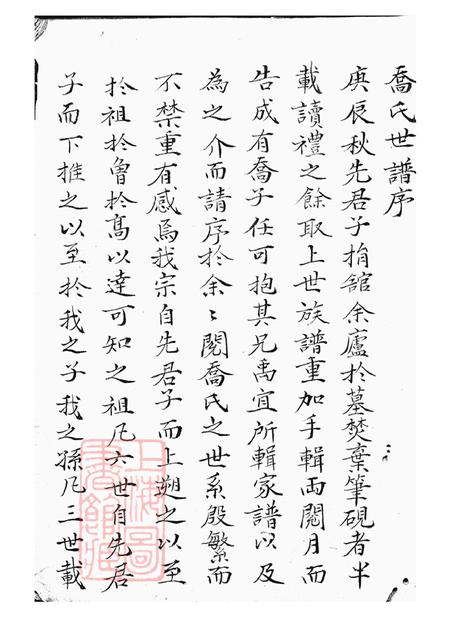 喬氏世譜序
庚辰秋先君子捐舘余廬於墓焚棄筆硯者半
載讀禮之餘取上世族譜重加手輯兩閱月而
告成有喬子任可抱其兄禹宜所輯家譜以及
為之介而請序於余〻閱喬氏之世系殷繁而
不禁重有感焉我宗自先君子而上遡之以至
於祖於曾於高以達可知之祖凡六世自先君
子而下推之以至於我之子我之孫凡三世載
上海圖書館藏